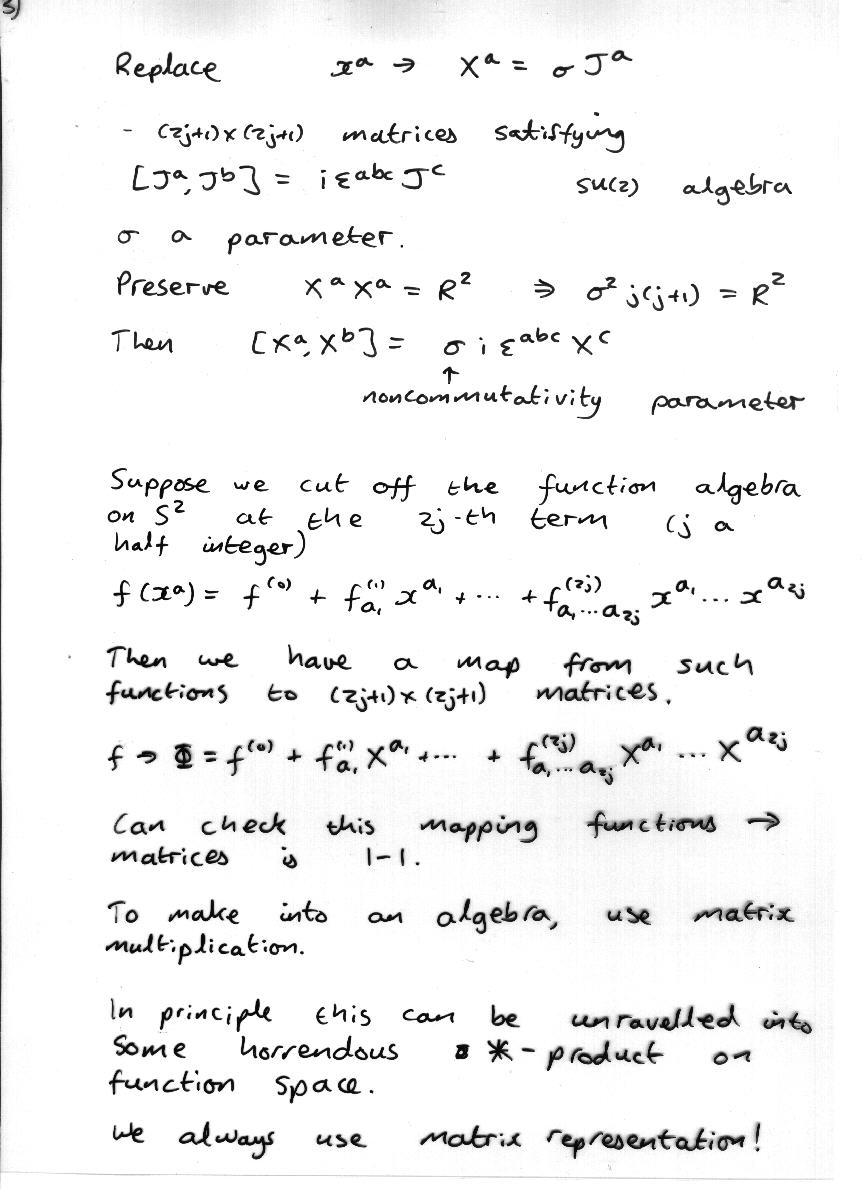 5)
Replace xᵃ → Xᵃ = σ Jᵃ
- (2j+1)×(2j+1) matrices satisfying
[Jᵃ, Jᵇ] = i εᵃᵇᶜ Jᶜ su(2) algebra
σ a parameter.
Preserve XᵃXᵃ = R² ⇒ σ² j(j+1) = R²
Then [Xᵃ, Xᵇ] = σ i εᵃᵇᶜ Xᶜ
↑
noncommutativity parameter
Suppose we cut off the function algebra
on S² at the 2j-th term (j a
half integer)
f(xᵃ) = f^(0) + f^(1)_{a₁} x^{a₁} + ··· + f^(2j)_{a₁...a_{2j}} x^{a₁} ... x^{a_{2j}}
Then we have a map from such
functions to (2j+1)×(2j+1) matrices.
f → Φ = f^(0) + f^(1)_{a₁} X^{a₁} + ··· + f^(2j)_{a₁...a_{2j}} X^{a₁} ... X^{a_{2j}}
Can check this mapping functions →
matrices is 1-1.
To make into an algebra, use matrix
multiplication.
In principle this can be unravelled into
some horrendous *-product on
function space.
We always use matrix representation!